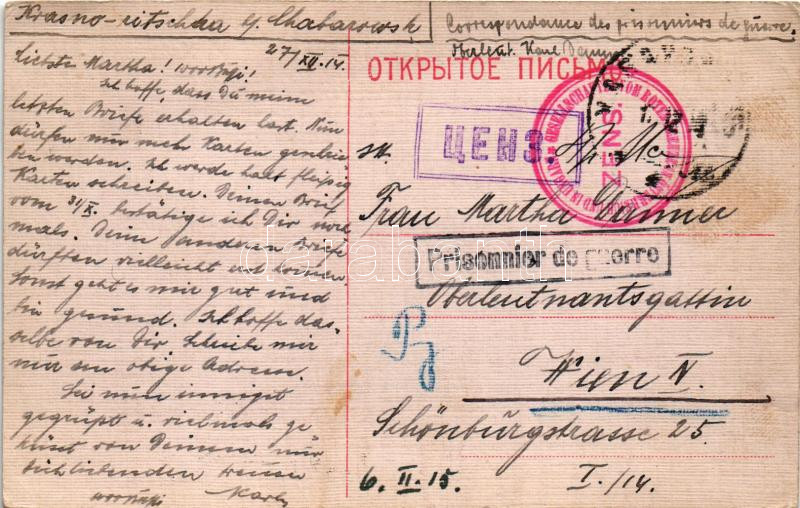 Krasno-ritschka b/ Chabarowsk
Correspondance des prisonniers de guerre.
Oberleut. Karl
27/XII. 14.
ОТКРЫТОЕ ПИСЬМО
Liebste Martha!
Ich hoffe dass Du meine
letzten Briefe erhalten hast. Nun
dürfen nur mehr Karten geschrie-
ben werden. Ich werde halt fleißig
Karten schreiben. Deinen Brief
vom 31/X. bestätige ich Dir noch-
mals. Deine anderen Briefe
dürften vielleicht erst kommen.
Sonst geht es mir gut und
bin gesund. Ich hoffe das-
selbe von Dir. Schreibe mir
nur an obige Adresse.
Sei nun innigst
gegrüßt u. vielmals ge
küsst von Deinem nur
Dich liebenden treuen
Karl
ЦЕНЗ.
ZENS.
Frau Martha
Prisonnier de guerre
Oberleutnantsgattin
Wien V.
Schönburgstrasse 25.
6. II. 15.
I./14.
darabanth